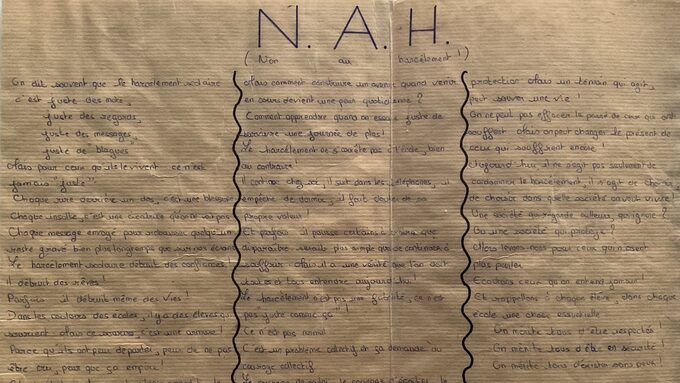 N. A. H.
( Non au harcèlement ! )
On dit souvent que le harcèlement scolaire
c'est juste des mots,
juste des regards,
juste des messages,
juste de blagues
Mais pour ceux qu'ils le vivent ce n'est
jamais "juste"
Chaque rire derrière un dos, c'est une blessure
Chaque insulte, c'est une cicatrice qu'on ne voit pas
Chaque message envoyé pour rabaisser quelqu'un
reste gravé bien plus longtemps que sur nos écrans
Le harcèlement scolaire détruit des confiances
il détruit des rêves !
Parfois il détruit même des vies !
Dans les couloirs des écoles, il y a des élèves qui
sourient mais ce sourire, c'est une armure !
Parce qu'ils ont peur de parler, peur de ne pas
être cru, peur que ça empire !
Mais comment construire un avenir quand venir
en cours devient une peur quotidienne ?
Comment apprendre quand on essaie juste de
survivre une journée de plus !
Le harcèlement ne s'arrête pas à l'école, bien
au contraire !
Il continue chez soi, il suit dans les téléphones, il
empêche de dormir, il fait douter de sa
propre valeur !
Et parfois il pousse certains à croire que
disparaître serait plus simple que de continuer à
souffrir Mais il a une vérité que l'on doit
toutes et tous entendre aujourd'hui !
Le harcèlement n'est pas une fatalité, ce n'est
pas juste comme ça "!
Ce n'est pas normal
C'est un problème collectif et ça demande du
courage collectif
protection Mais un témoin qui agit,
peut sauver une vie
On ne peut pas effacer le passé de ceux qui ont
souffert Mais on peut changer le présent de
ceux qui souffrent encore !
Aujourd'hui, il ne s'agit pas seulement de
condamner le harcèlement, il s'agit de
de choisir dans quelle société on veut vivre !
Une société qui regarde ailleurs, qui ignore ?
Ou une société qui protège ?
Alors levons nous pour ceux qui n'osent
plus parler
Ecoutons ceux qu'on entend jamais !
Et rappellons à chaque élève, dans chaque
école une chose essentielle
On mérite tous d'être respectés !
On mérite tous d'être en sécurité !
On mérite tous d'exister sans peur !